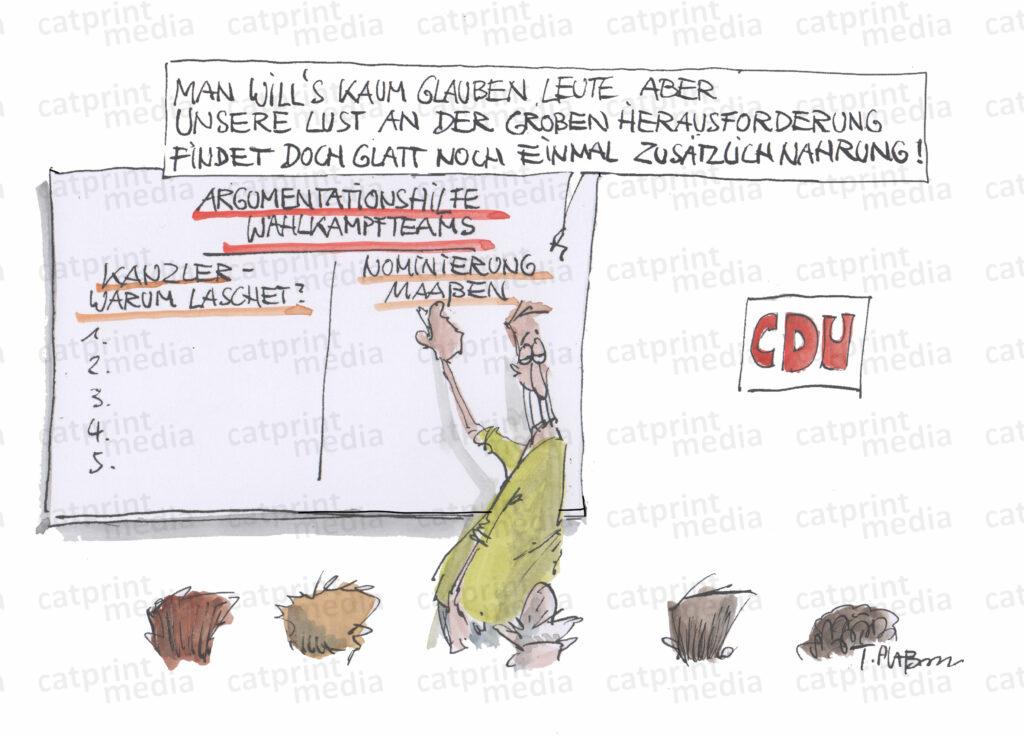 MAN WILL'S KAUM GLAUBEN LEUTE ABER
UNSERE LUST AN DER GROBEN HERAUSFORDERUNG
FINDET DOCH GLATT NOCH EINMAL ZUSÄTZLICH NAHRUNG!
ARGUMENTATIONSHILFE
WAHLKAMPFTEAMS
KANZLER-
WARUM LASCHET?
1.
2.
3.
4.
5.
NOMINIERUNG
MAAßEN
CDU
catprint
media